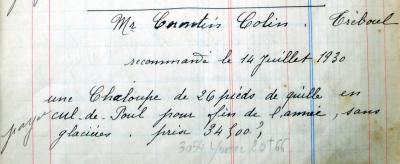 Mr Corentin Colin. Tréboul
recommandé le 14 Juillet 1930
une Chaloupe de 26 pieds de quille en
cul-de-Poul pour fin de l'année, sans
glacières. prix 34500
payé